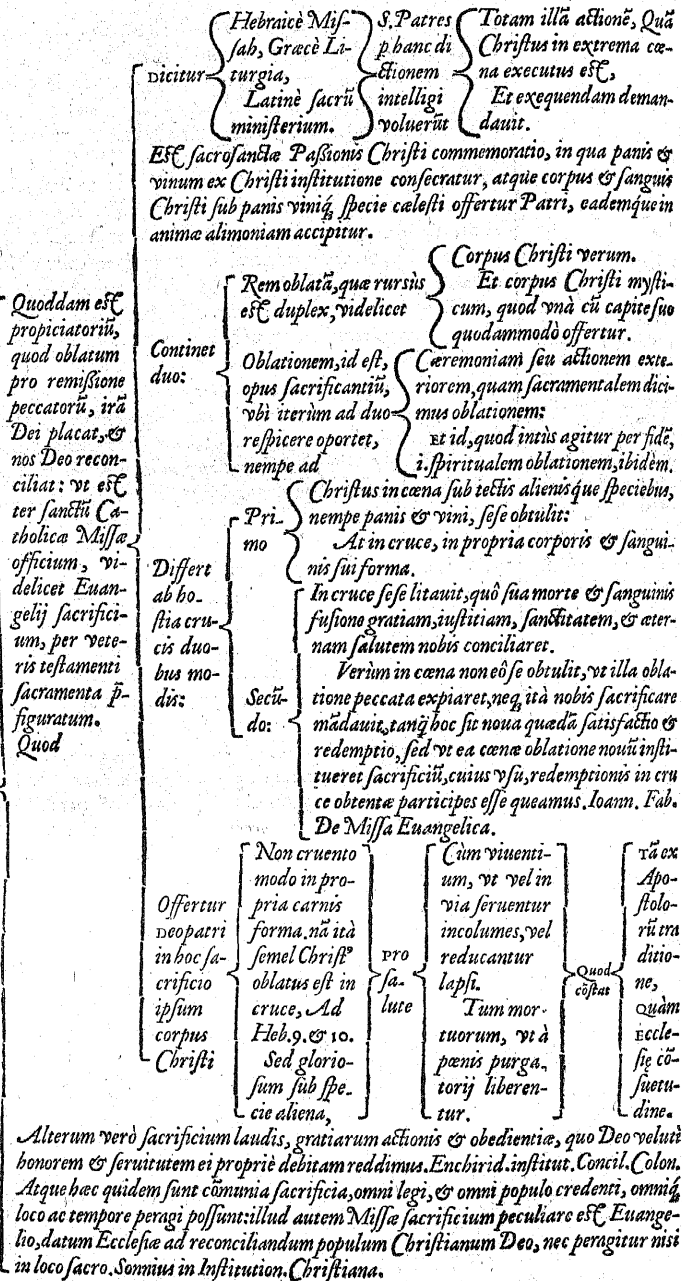 Quoddam est
propiciatoriũ,
quod oblatum
pro remißione
peccatorũ, irã
Dei placat, &
nos Deo recon-
ciliat: vt est
ter sanctũ Ca-
tholicæ Missæ
officium, vi-
delicet Euan-
gelij sacrifici-
um, per vete-
ris testamenti
sacramenta p̃-
figuratum.
Quod
Dicitur
Hebraicè Mis-
sah, Græcè Li-
turgia,
Latinè sacrũ
ministerium.
S. Patres
p hanc di
ctionem
intelligi
voluerũt
Totam illã actionẽ, Quã
Christus in extrema cœ-
na executus est,
Et exequendam deman-
dauit.
Est sacrosanctæ Paßionis Christi commemoratio, in qua panis &
vinum ex Christi institutione consecratur, atque corpus & sanguis
Christi sub panis viniq́; specie cælesti offertur Patri, eademq́ue in
animæ alimoniam accipitur.
Continet
duo:
Rem oblatã, quæ rursùs
est duplex, videlicet
Corpus Christi verum.
Et corpus Christi mysti-
cum, quod vnà cũ capite suo
quodammodò offertur.
Oblationem, id est,
opus sacrificantiũ,
vbi iterùm ad duo
respicere oportet,
nempe ad
Cæremoniam seu actionem exte-
riorem, quam sacramentalem dici-
mus oblationem:
Et id, quod intùs agitur per fidẽ,
i. spiritualem oblationem, ibidèm.
Differt
ab ho-
stia cru-
cis duo-
bus mo-
dis:
Pri-
mo
Christus in cœna sub tectis alienisq́ue speciebus,
nempe panis & vini, sese obtulit:
At in cruce, in propria corporis & sangui-
nis sui forma.
Secũ-
do:
In cruce sese litauit, quô sua morte & sanguinis
fusione gratiam, iustitiam, sanctitatem, & æter-
nam salutem nobis conciliaret.
Verùm in cœna non eô se obtulit, vt illa obla-
tione peccata expiaret, neq; ità nobis sacrificare
mãdauit, tanq̃ hoc sit noua quædã satisfactio &
redemptio, sed vt ea cœnæ oblatione nouũ insti-
tueret sacrificiũ, cuius vsu, redemptionis in cru
ce obtentæ participes esse queamus. Ioann. Fab.
De Missa Euangelica.
Offertur
Deo patri
in hoc sa-
crificio
ipsum
corpus
Christi
Non cruento
modo in pro-
pria carnis
forma. nã ità
semel Christꝰ
oblatus est in
cruce, Ad
Heb. 9. & 10.
Sed glorio-
sum sub spe-
cie aliena,
pro
sa-
lute
Cùm viuenti-
um, vt vel in
via seruentur
incolumes, vel
reducantur
lapsi.
Tum mor-
tuorum, vt à
pœnis purga-
torij liberen-
tur.
Quod
cõstat
Tã ex
Apo-
stolo-
rũ tra
ditio-
ne,
Quàm
Eccle-
się cõ-
suetu-
dine.
Alterum verò sacrificium laudis, gratiarum actionis & obedientiæ, quo Deo veluti
honorem & seruitutem ei propriè debitam reddimus. Enchirid. institut. Concil. Colon.
Atque hæc quidem sunt cõmunia sacrificia, omni legi, & omni populo credenti, omniq́;
loco ac tempore peragi possunt: illud autem Missæ sacrificium peculiare est Euange-
lio, datum Ecclesiæ ad reconciliandum populum Christianum Deo, nec peragitur nisi
in loco sacro. Sonnius in Institution. Christiana.